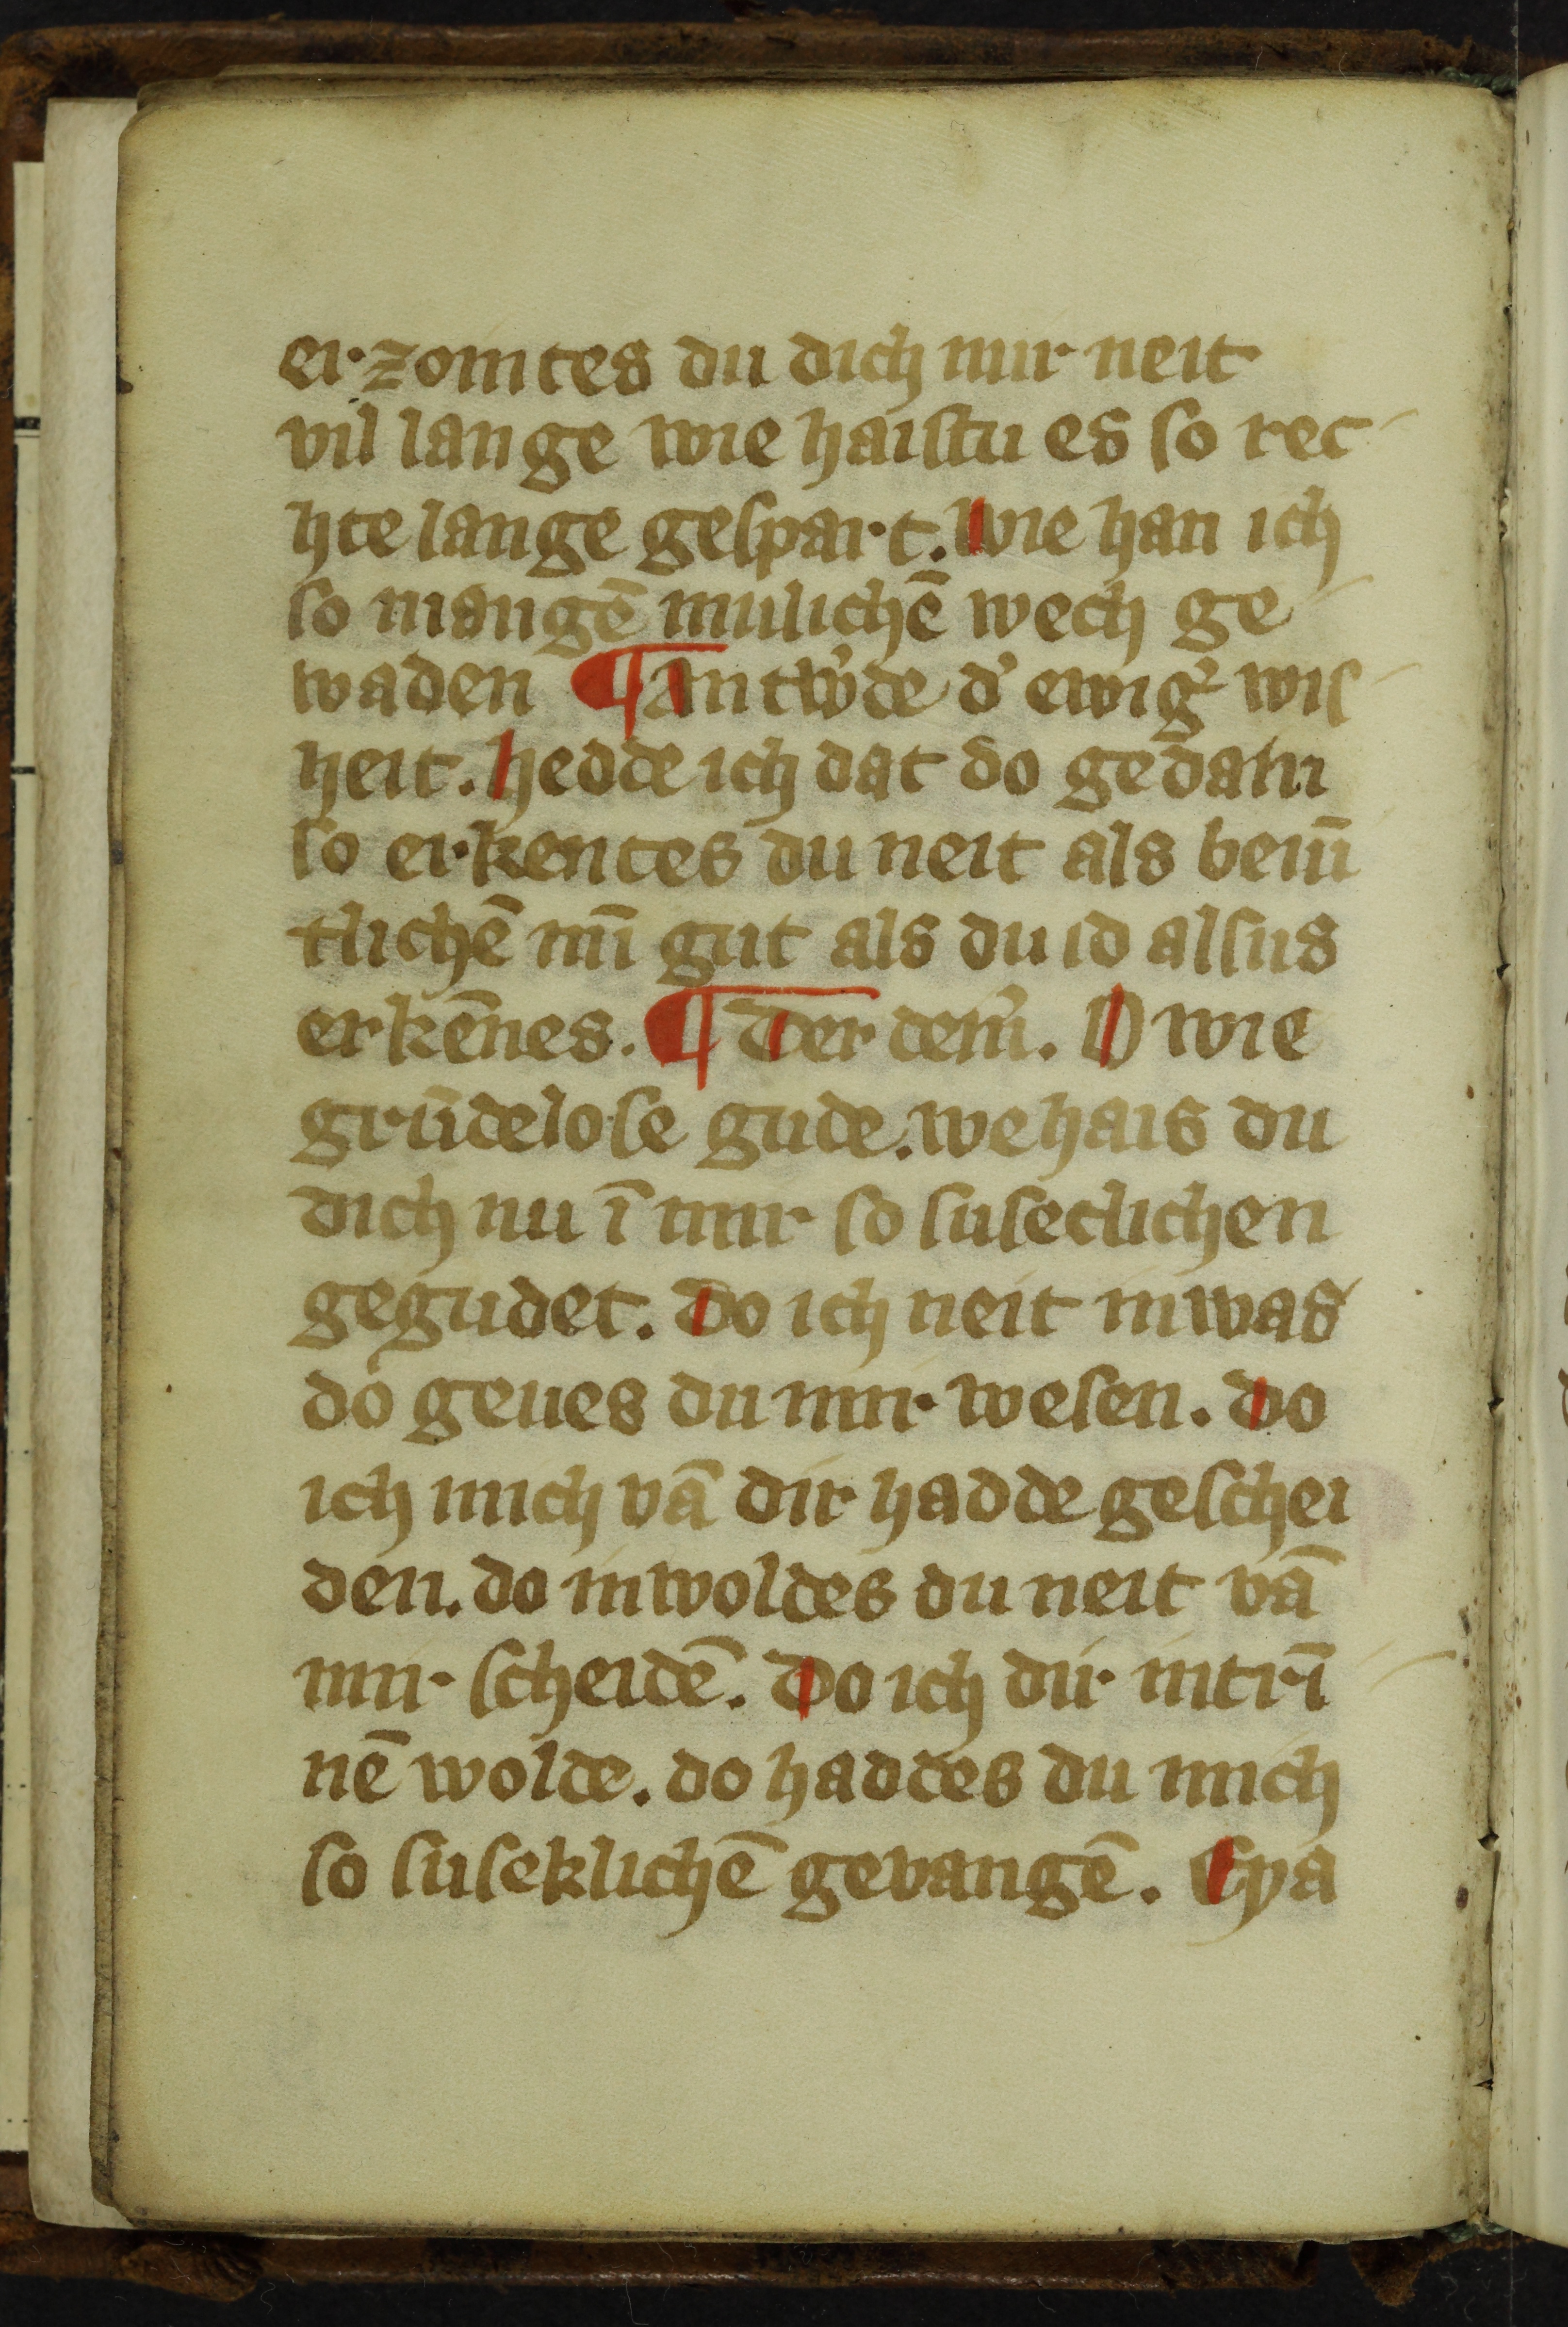 erzomtes du dich mir neit
vil lange wie haistu es so rec
hte lange gespart. Wie han ich
so mangē mulichē wech ge
waden ¶ Antw'de d' ewig' wis
heit. Hedde ich dat do gedain
so erkentes du neit als beuī
tlichē mī gut als du id alsus
erkēnes. ¶ Der dein'. O wie
grūdelose gude. we hais du
dich nu ī mir so suseclichen
gegudet. Do ich neit inwas
do geues du mir wesen. Do
ich mich vā dir hadde geschei
den. do inwoldes du neit vā
mir scheidē. Do ich dir intrī
nē wolde. do haddes du mich
so suseklichē gevangē. Eya